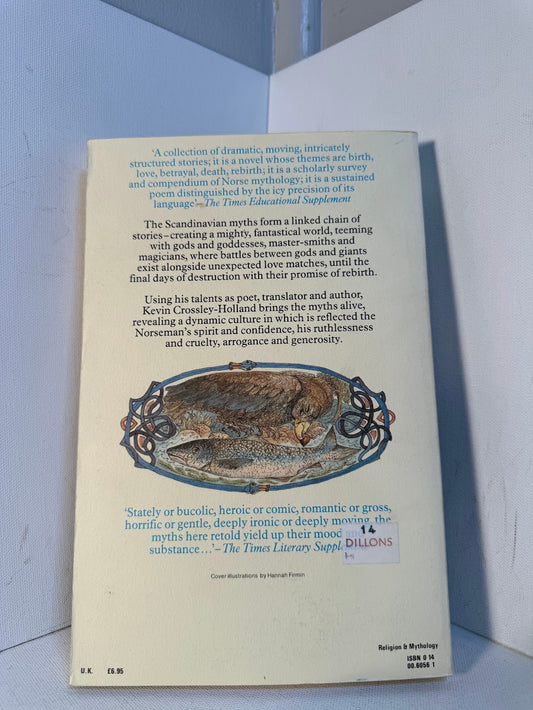 'A collection of dramatic, moving, intricately
structured stories; it is a novel whose themes are birth,
love, betrayal, death, rebirth; it is a scholarly survey
and compendium of Norse mythology; it is a sustained
poem distinguished by the icy precision of its
language'–The Times Educational Supplement
The Scandinavian myths form a linked chain of
stories–creating a mighty, fantastical world, teeming
with gods and goddesses, master-smiths and
magicians, where battles between gods and giants
exist alongside unexpected love matches, until the
final days of destruction with their promise of rebirth.
Using his talents as poet, translator and author,
Kevin Crossley-Holland brings the myths alive,
revealing a dynamic culture in which is reflected the
Norseman's spirit and confidence, his ruthlessness
and cruelty, arrogance and generosity.
'Stately or bucolic, heroic or comic, romantic or gross,
horrific or gentle, deeply ironic or deeply moving, the
myths here retold yield up their mood
substance...'– The Times Literary Suppl
14
DILLONS
Cover illustrations by Hannah Firmin
Religion & Mythology
ISBN 0 14
00.6056 1
U.K. £6.95